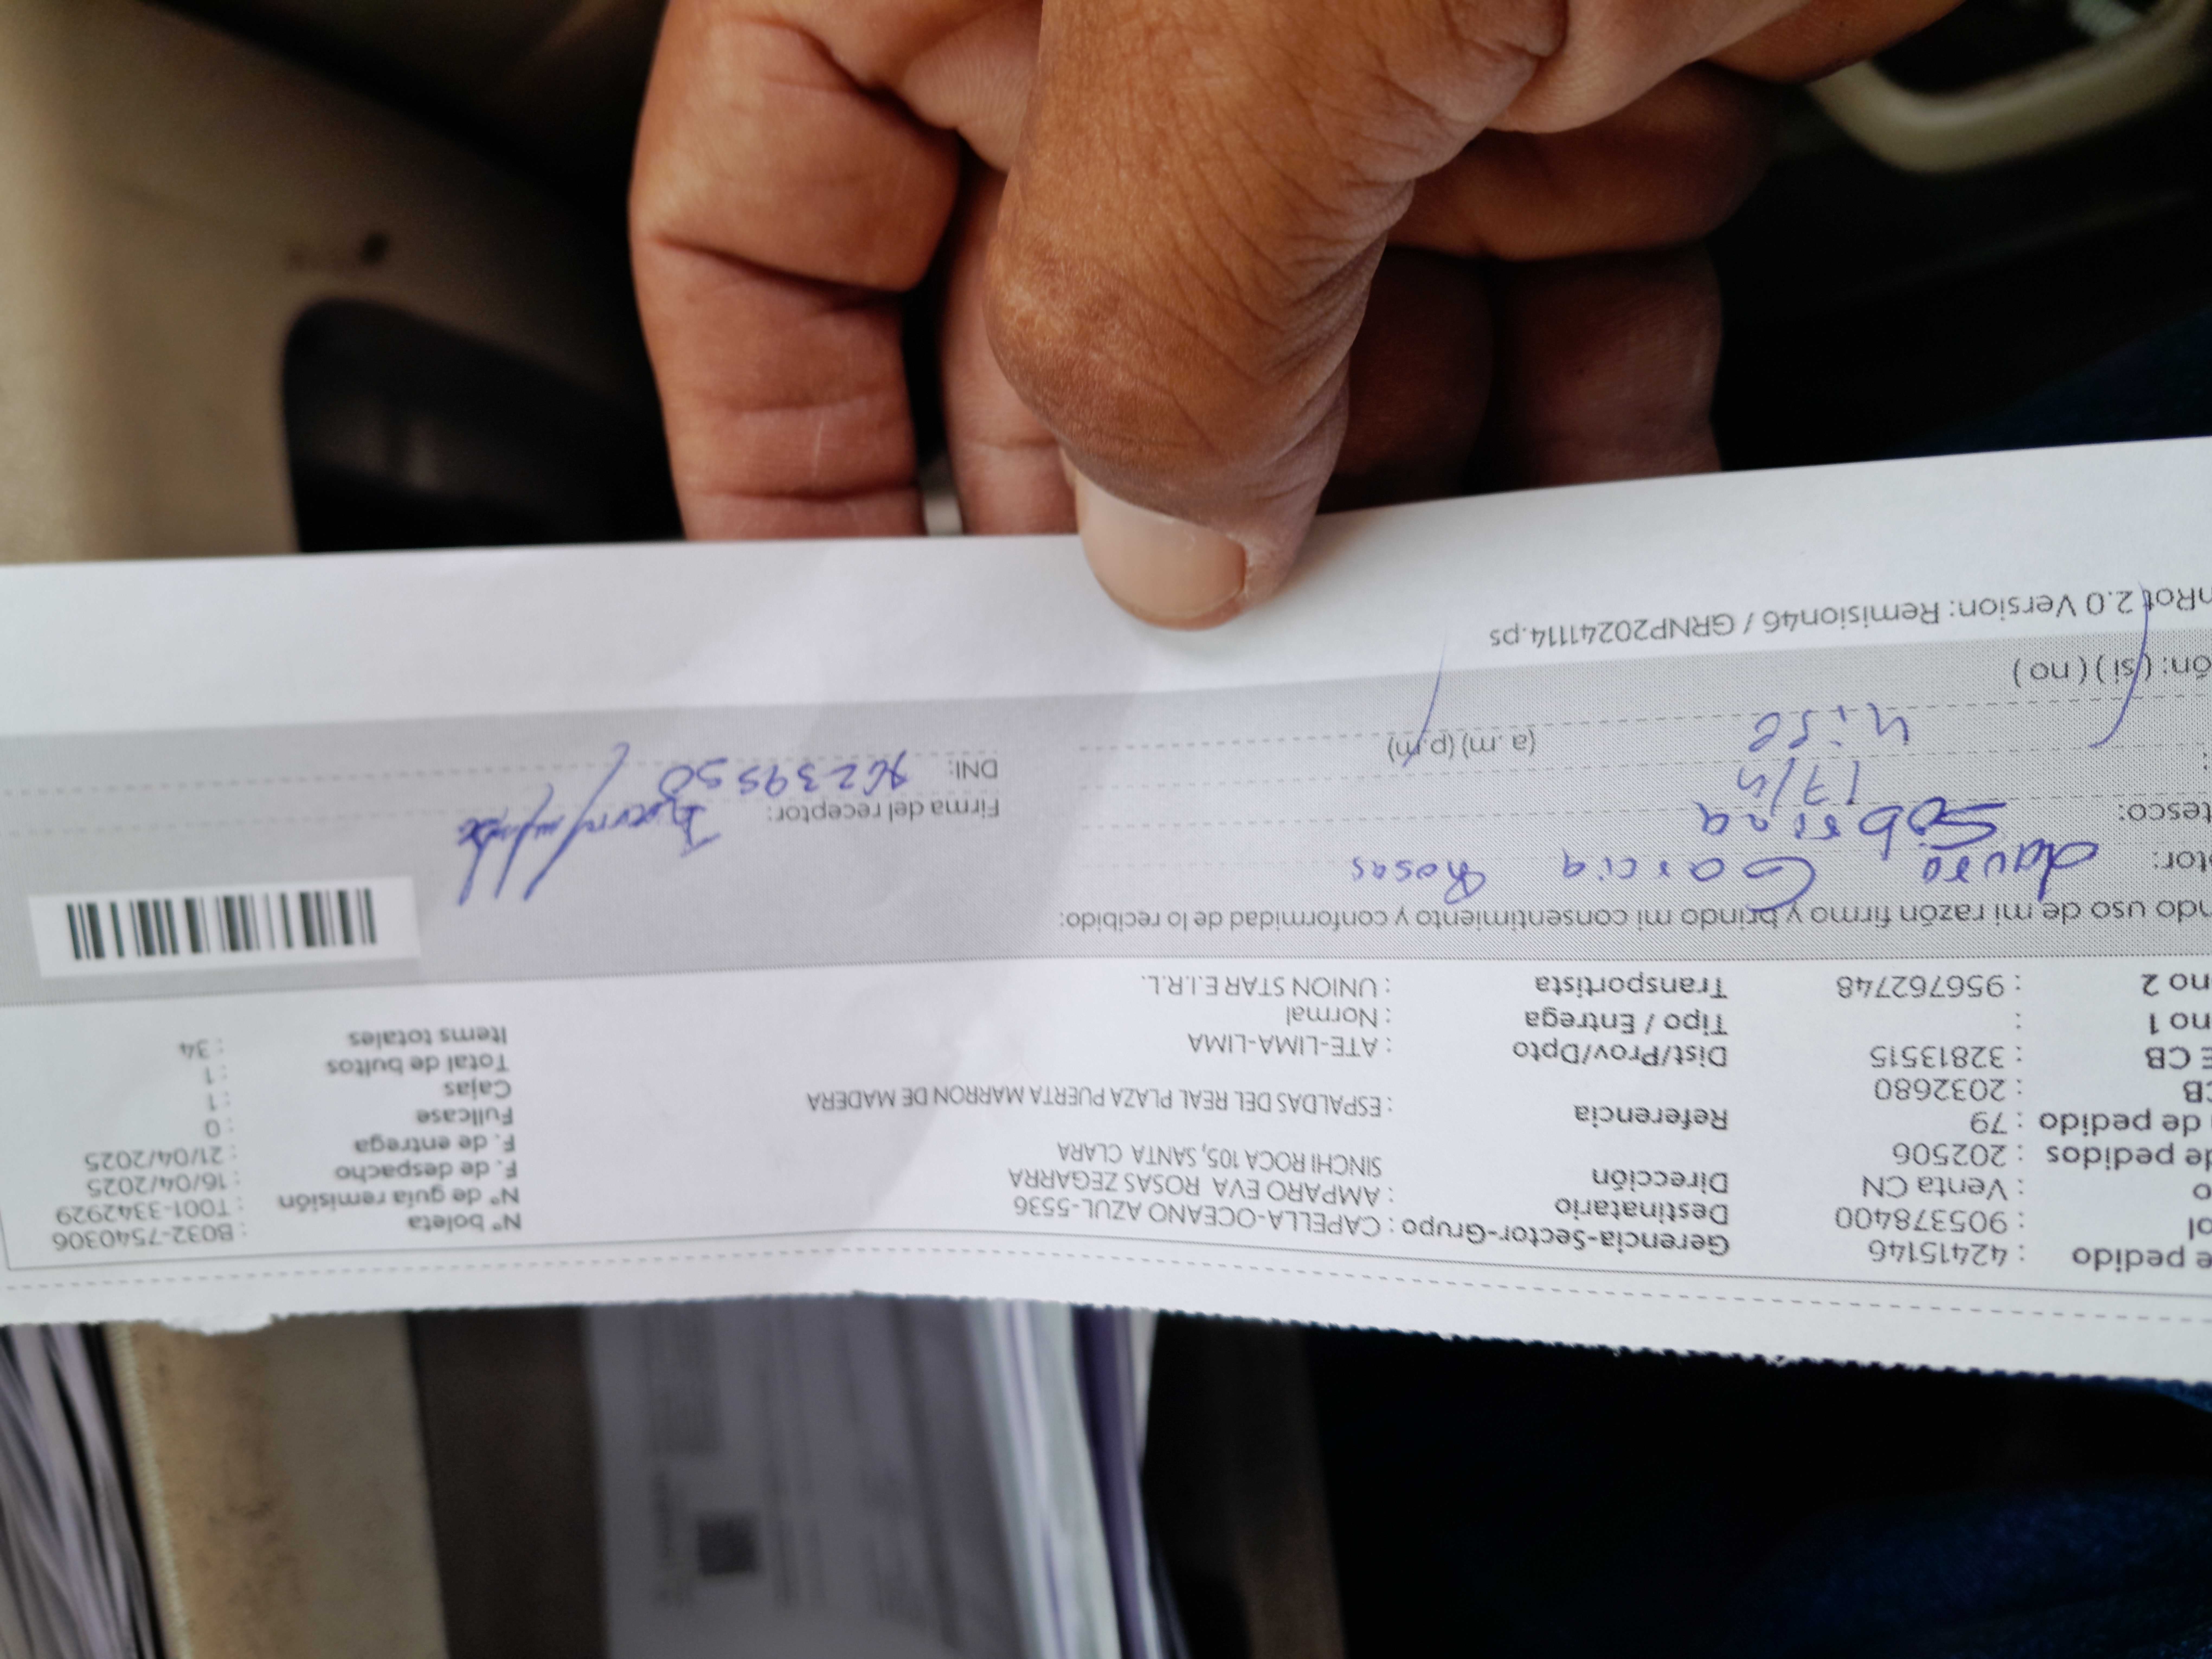 e pedido : 42415146 Gerencia-Sector-Grupo : CAPELLA-OCEANO AZUL-5536 N° boleta : B032-7540306
ol : 905378400 Destinatario : AMPARO EVA ROSAS ZEGARRA N° de guía remisión : T001-3342929
o : Venta CN Dirección SINCHI ROCA 105, SANTA CLARA F. de despacho : 16/04/2025
de pedidos : 202506 F. de entrega : 21/04/2025
de pedido : 79 Referencia : ESPALDAS DEL REAL PLAZA PUERTA MARRON DE MADERA Fullcase : 0
CB : 2032680 Cajas : 1
E CB : 32813515 Dist/Prov/Dpto : ATE-LIMA-LIMA Total de bultos : 1
no 1 : Tipo / Entrega : Normal Items totales : 34
no 2 : 956762748 Transportista : UNION STAR E.I.R.L.
ndo uso de mi razón firmo y brindo mi consentimiento y conformidad de lo recibido:
tor: Garcia Rosas
tesco: Sobrina Firma del receptor:
: 17/4 DNI:
(a.m) (p.m)
ón: ( si ) ( no )
nRot 2.0 Version: Remision46 / GRNP20241114.ps